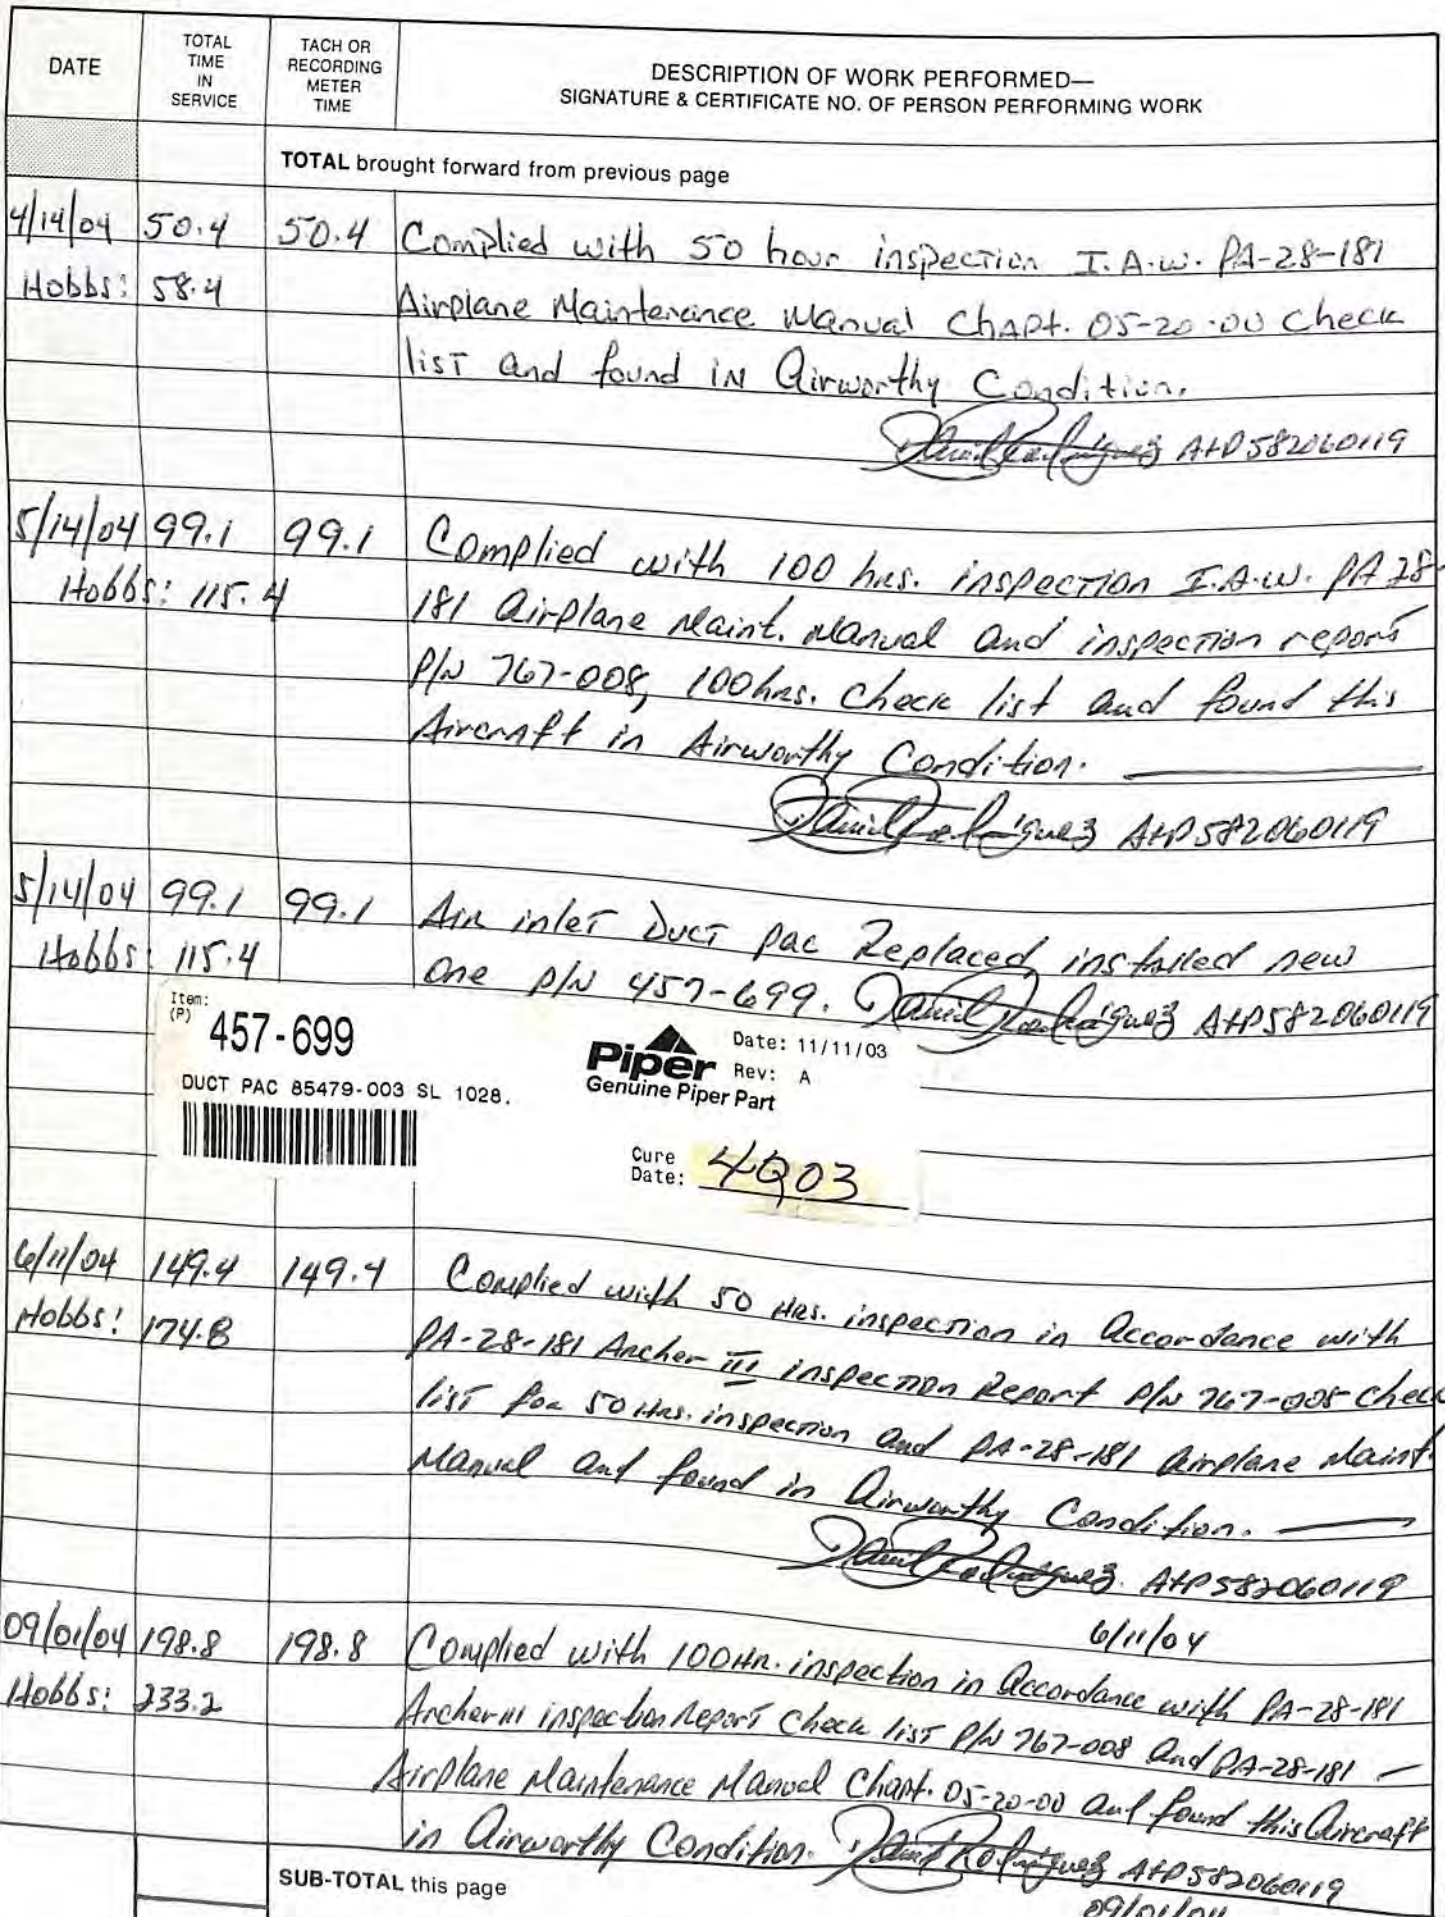 DATE
TOTAL TIME IN SERVICE
TACH OR RECORDING METER TIME
DESCRIPTION OF WORK PERFORMED—
SIGNATURE & CERTIFICATE NO. OF PERSON PERFORMING WORK
TOTAL brought forward from previous page
4/14/04 50.4 50.4 Complied with 50 hour inspection I.A.W. PA-28-181
Hobbs: 58.4 Airplane Maintenance Manual Chapt. 05-20-00 Check
list and found in Airworthy Condition.
A+P 582060119
5/14/04 99.1 99.1 Complied with 100 hrs. inspection I.A.W. PA 28-
Hobbs: 115.4 181 Airplane Maint. Manual and inspection report
P/N 767-008, 100 hrs. Check list and found this
Aircraft in Airworthy Condition.
A+P 582060119
5/14/04 99.1 99.1 Air inlet Duct pac Replaced installed new
Hobbs: 115.4 One P/N 457-699. A+P 582060119
Item: (P) 457-699
DUCT PAC 85479-003 SL 1028.
Piper
Genuine Piper Part
Date: 11/11/03
Rev: A
Cure Date: 4Q03
6/11/04 149.4 149.4 Complied with 50 Hrs. inspection in Accordance with
Hobbs: 174.8 PA-28-181 Archer III inspection Report P/N 767-008 Check
list for 50 Hrs. inspection and PA-28-181 Airplane Maint.
Manual and found in Airworthy Condition.
A+P 582060119
6/11/04
09/01/04 198.8 198.8 Complied with 100 Hr. inspection in Accordance with PA-28-181
Hobbs: 233.2 Archer III inspection Report Check list P/N 767-008 and PA-28-181 —
Airplane Maintenance Manual Chapt. 05-20-00 and found this Aircraft
in Airworthy Condition. A+P 582060119
09/01/04
SUB-TOTAL this page